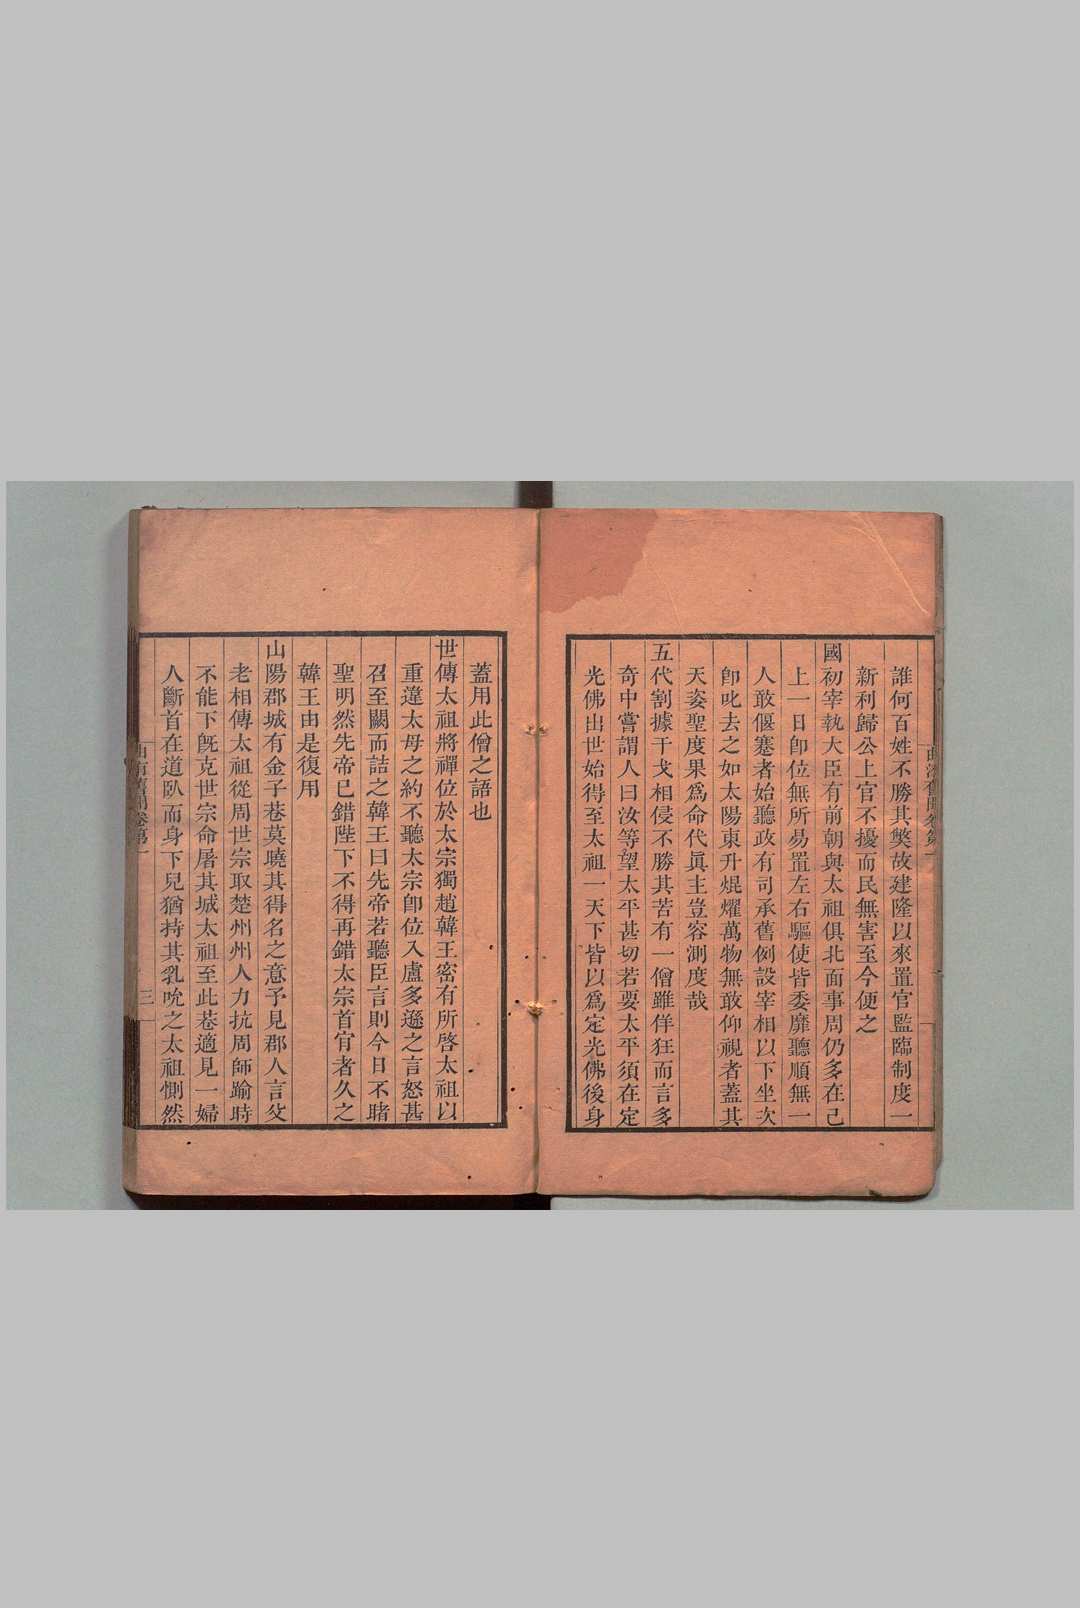 誰何百姓不勝其獘故建隆以來置官監臨制度一
新利歸公上官不擾而民無害至今便之
國初宰執大臣有前朝與太祖俱北面事周仍多在己
上一日卽位無所易置左右驅使皆委靡聽順無一
人敢偃蹇者始聽政有司承舊例設宰相以下坐次
卽叱去之如太陽東升焜燿萬物無敢仰視者蓋其
天姿聖度果爲命代眞主豈容測度哉
五代割據干戈相侵不勝其苦有一僧雖佯狂而言多
奇中嘗謂人曰汝等望太平甚切若要太平須在定
光佛出世始得至太祖一天下皆以爲定光佛後身
蓋用此僧之語也
世傳太祖將禪位於太宗獨趙韓王密有所啓太祖以
重違太母之約不聽太宗卽位入盧多遜之言怒甚
召至闕而詰之韓王曰先帝若聽臣言則今日不睹
聖明然先帝已錯陛下不得再錯太宗首肎者久之
韓王由是復用
山陽郡城有金子巷莫曉其得名之意予見郡人言父
老相傳太祖從周世宗取楚州州人力抗周師踰時
不能下旣克世宗命屠其城太祖至此巷適見一婦
人斷首在道臥而身下兒猶持其乳吮之太祖惻然
曲洧舊聞卷第一
三